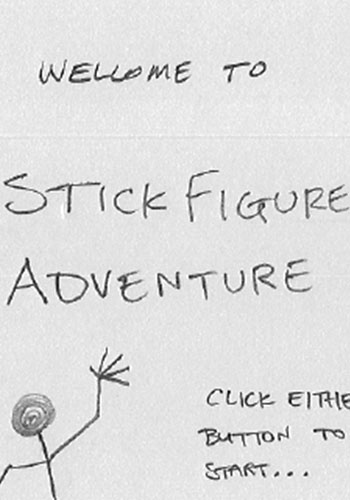 WELCOME TO
STICK FIGURE
ADVENTURE
CLICK EITHE
BUTTON TO
START...